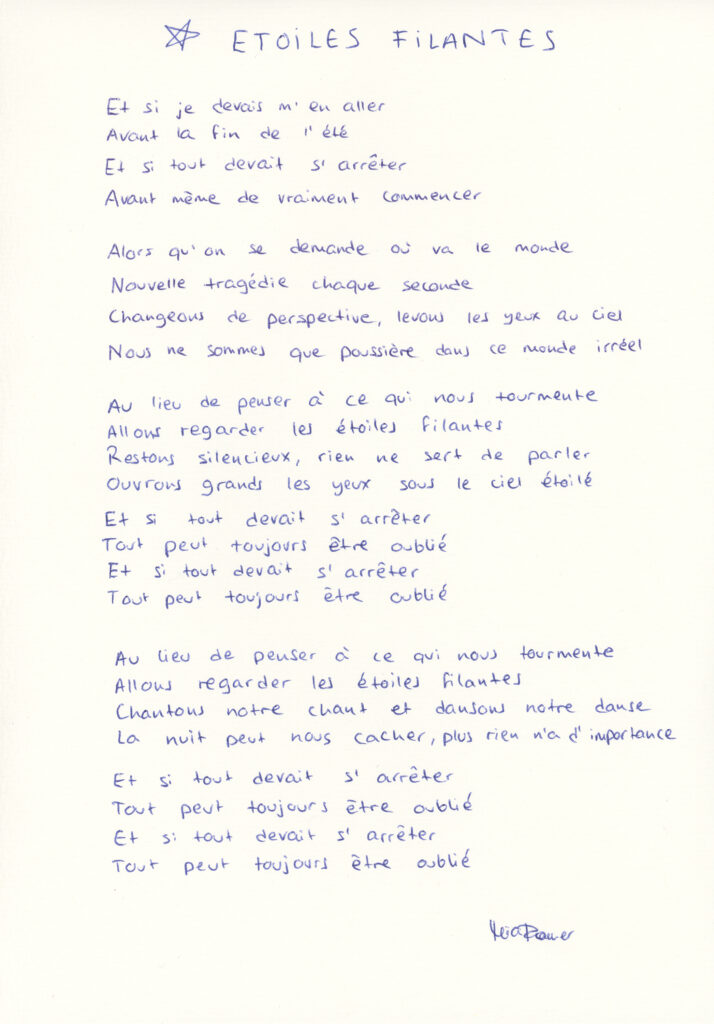 ETOILES FILANTES
Et si je devais m'en aller
Avant la fin de l'été
Et si tout devait s'arrêter
Avant même de vraiment commencer
Alors qu'on se demande où va le monde
Nouvelle tragédie chaque seconde
Changeons de perspective, levons les yeux au ciel
Nous ne sommes que poussière dans ce monde irréel
Au lieu de penser à ce qui nous tourmente
Allons regarder les étoiles filantes
Restons silencieux, rien ne sert de parler
Ouvrons grands les yeux sous le ciel étoilé
Et si tout devait s'arrêter
Tout peut toujours être oublié
Et si tout devait s'arrêter
Tout peut toujours être oublié
Au lieu de penser à ce qui nous tourmente
Allons regarder les étoiles filantes
Chantons notre chant et dansons notre danse
La nuit peut nous cacher, plus rien n'a d'importance
Et si tout devait s'arrêter
Tout peut toujours être oublié
Et si tout devait s'arrêter
Tout peut toujours être oublié